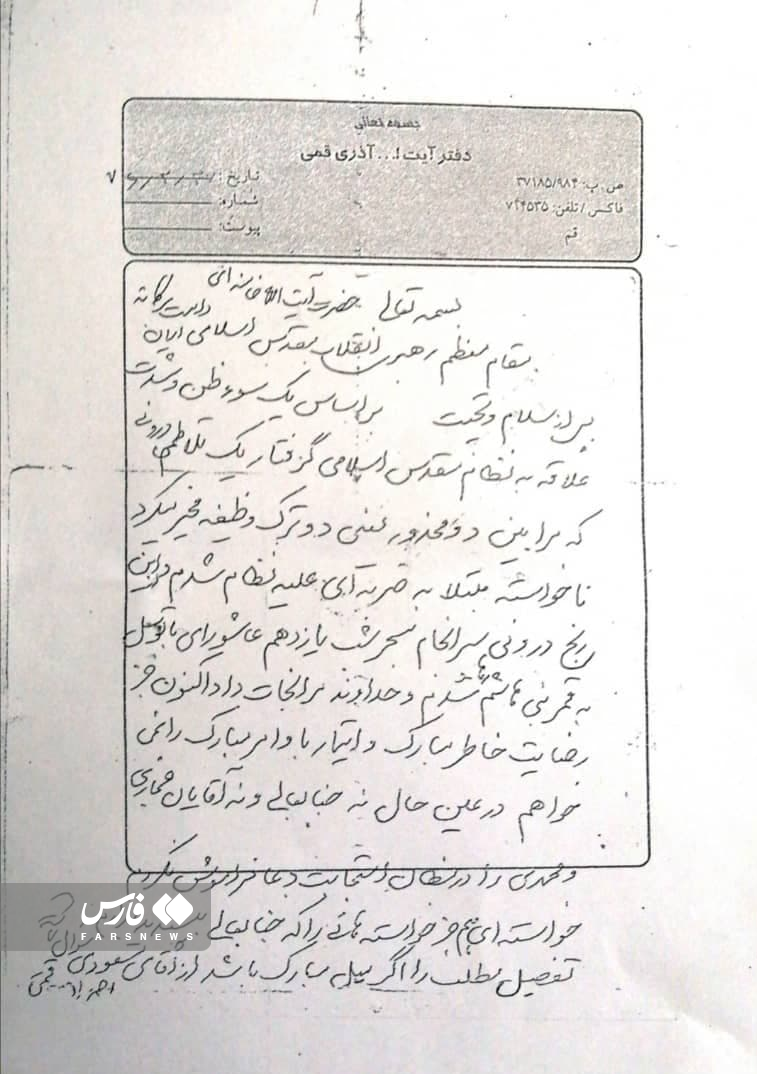 بسمه تعالی
دفتر آیت ا... آذری قمی
ص. ب: ۳۷۱۸۵/۹۸۴
فاکس / تلفن: ۷۴۴۵۳۵
قم
تاریخ:
شماره:
پیوست:
بسمه تعالی حضرت آیت الله خامنه ای دامت برکاته
مقام معظم رهبری انقلاب مقدس اسلامی ایران
پس از سلام و تحیت بر اساس یک سوء ظن و شدت
علاقه به نظام مقدس اسلامی گرفتار یک تلاطم درونی
که مرا بین دو محذور یعنی دو ترک وظیفه مخیر میکرد
ناخواسته مبتلا به ضربه ای علیه نظام شدم و این
رنج درونی سرانجام سحر شب یازدهم عاشورای با توسل
به قمر بنی هاشم شدنم و خداوند مرا نجات داد اکنون جز
رضایت خاطر مبارک و ایتمار با وامر مبارک را نمی
خواهم در عین حال نه جنابعالی و نه آقایان
و محمدی را در مظان استجابت دعا فراموش نکرده
خواسته ای هم جز خواسته هائی را که جنابعالی
تفصیل مطلب را اگر میل مبارک باشد از آقای مسعودی
احمد آذری قمی
فارس
FARSNEWS